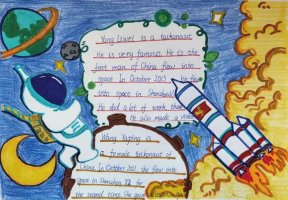 Yang Liwei is a taikonaut
He is very famous. He is the
first man of China flow into
space In October 2013 he flew
into space in Shenzhou
He did a lot of work there
He also made a
Wang Yaping is
a female taikonaut of
China. In October 2021, she flow into
space in Shenzhou XⅢ for
the second time. She gave